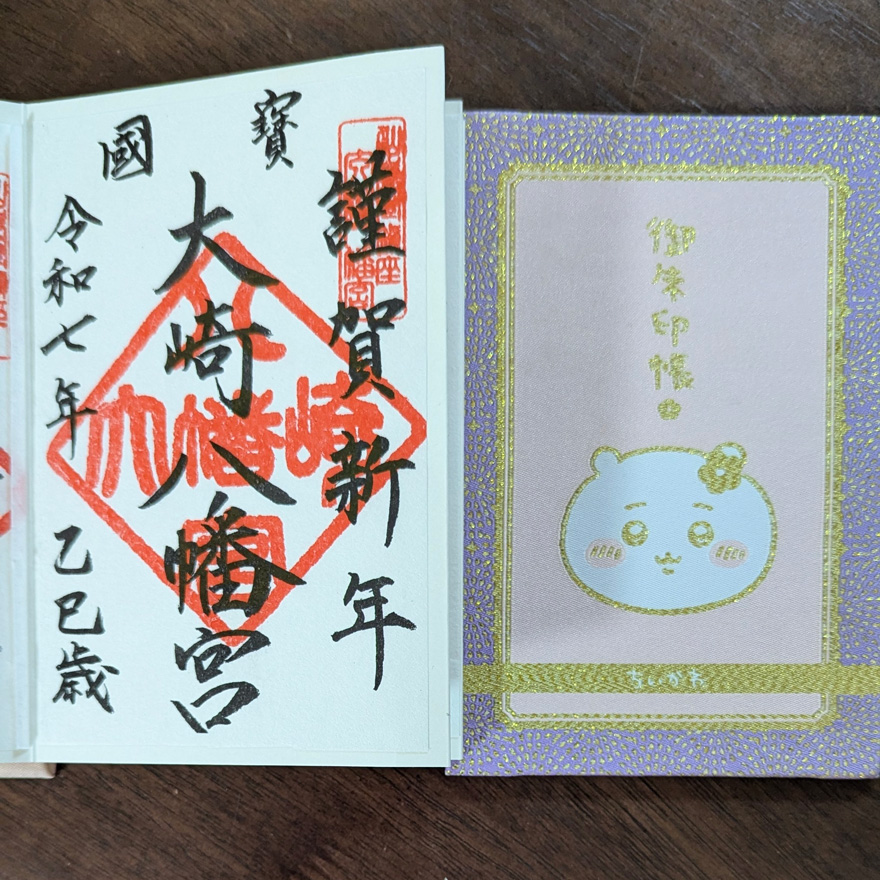 國寶
謹賀新年
大崎八幡宮
令和七年 乙巳歳
大崎八幡
御朱印帳
ちいかわ